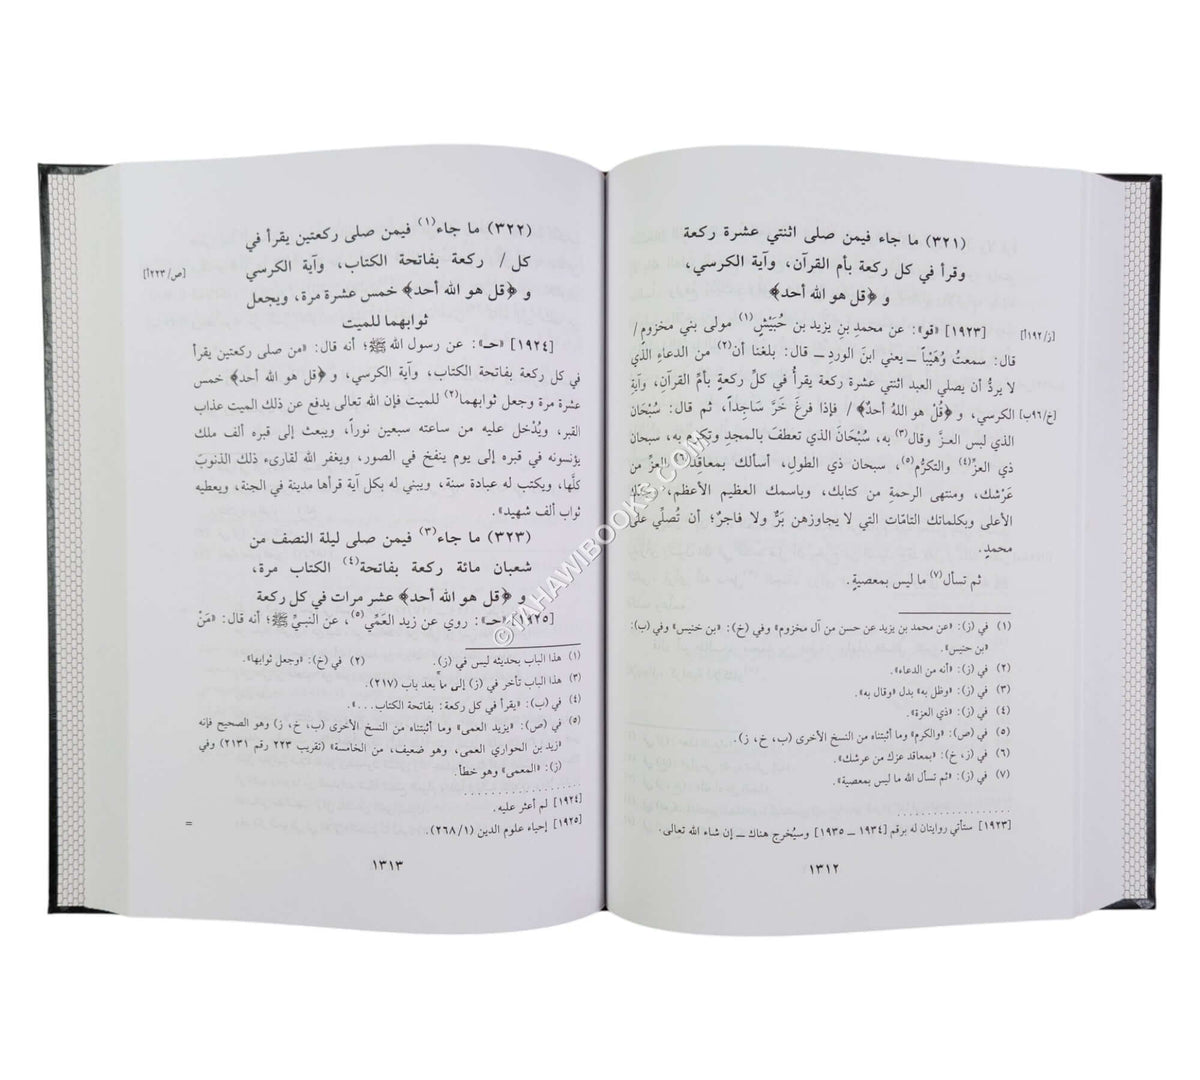 (٣٢١) ما جاء فيمن صلى اثنتي عشرة ركعة
وقرأ في كل ركعة بأم القرآن، وآية الكرسي،
و ﴿قل هو الله أحد﴾
[١٩٢٣] «قو»: عن محمدِ بنِ يزيد بن حُبَيْشٍ(١) مولى بني مخزوم/
[ز/١٩٢أ]
قال: سمعتُ وُهَيْباً ــ يعني ابنَ الوردِ ــ قال: بلغنا أن(٢) من الدعاءِ الذي
لا يردُّ أن يصلي العبد اثنتي عشرة ركعة يقرأُ في كلِّ ركعةٍ بأمِّ القرآن، وآيةِ
[خ/٩٦ب]
الكرسي، و ﴿قُلْ هو اللهُ أحدٌ﴾/ فإذا فرغَ خَرَّ سَاجِداً، ثم قال: سُبْحَان
الذي لبس العـزَّ وقال(٣) به، سُبْحَانَ الذي تعطفَ بالمجدِ وتكرم به، سبحان
ذي العزِّ(٤) والتكرُّم(٥)، سبحان ذي الطولِ، أسألك بمعاقدِ العزِّ من
عَرْشك، ومنتهى الرحمةِ من كتابك، وباسمك العظيم الأعظم، وجدِّك
الأعلى وبكلماتك التامّات التي لا يجاوزهن بَرٌّ ولا فاجرٌ؛ أن تُصلِّي على
محمدٍ.
ثم تسأل(٧) ما ليس بمعصيةٍ.
(١) في (ز): «عن محمد بن يزيد عن حسن من آل مخزوم» وفي (خ): «بن خنيس» وفي (ب):
«بن حنيس».
(٢) في (ز): «أنه من الدعاء».
(٣) في (ز): «وظل به» بدل «وقال به».
(٤) في (ز): «ذي العزة».
(٥) في (ص): «والكرم» وما أثبتناه من النسخ الأخرى (ب، خ، ز).
(٦) في (ز، خ): «بمعاقد عزك من عرشك».
(٧) في (ز): «ثم تسأل الله ما ليس بمعصية».
[١٩٢٣] ستأتي روايتان له برقم [١٩٣٤ ــ ١٩٣٥] وسيُخرج هناك ــ إن شاء الله تعالى.
١٣١٢
(٣٢٢) ما جاء(١) فيمن صلى ركعتين يقرأ في
كل/ ركعة بفاتحة الكتاب، وآية الكرسي
[ص/٢٢٣أ]
و ﴿قل هو الله أحد﴾ خمس عشرة مرة، ويجعل
ثوابهما للميت
[١٩٢٤] «حـ»: عن رسول الله ﷺ؛ أنه قال: «من صلى ركعتين يقرأ
في كل ركعة بفاتحة الكتاب، وآية الكرسي، و ﴿قل هو الله أحد﴾ خمس
عشرة مرة وجعل ثوابهما(٢) للميت فإن الله تعالى يدفع عن ذلك الميت عذاب
القبر، ويُدْخل عليه من ساعته سبعين نوراً، ويبعث إلى قبره ألف ملك
يؤنسونه في قبره إلى يوم ينفخ في الصور، ويغفر الله لقارىء ذلك الذنوبَ
كلَّها، ويكتب له عبادة سنة، ويبني له بكل آية قرأها مدينة في الجنة، ويعطيه
ثواب ألف شهيد».
(٣٢٣) ما جاء(٣) فيمن صلى ليلة النصف من
شعبان مائة ركعة بفاتحة(٤) الكتاب مرة،
و ﴿قل هو الله أحد﴾ عشر مرات في كل ركعة
[١٩٢٥] «حـ»: روي عن زيد العَمِّي(٥)، عن النبيِّ ﷺ؛ أنه قال: «مَنْ
(١) هذا الباب بحديثه ليس في (ز). (٢) في (خ): «وجعل ثوابها».
(٣) هذا الباب تأخر في (ز) إلى ما بعد باب (٢١٧).
(٤) في (ب): «يقرأ في كل ركعة: بفاتحة الكتاب...».
(٥) في (ص): «يزيد العمى» وما أثبتناه من النسخ الأخرى (ب، خ، ز) وهو الصحيح فإنه
«زيد بن الحواري العمى، وهو ضعيف، من الخامسة» (تقريب ٢٢٣ رقم ٢١٣١) وفي
(ز): «المعمى» وهو خطأ.
[١٩٢٤] لم أعثر عليه.
[١٩٢٥] إحياء علوم الدين (٢٦٨/١).
=
١٣١٣
©TAHAWIBOOKS.COM